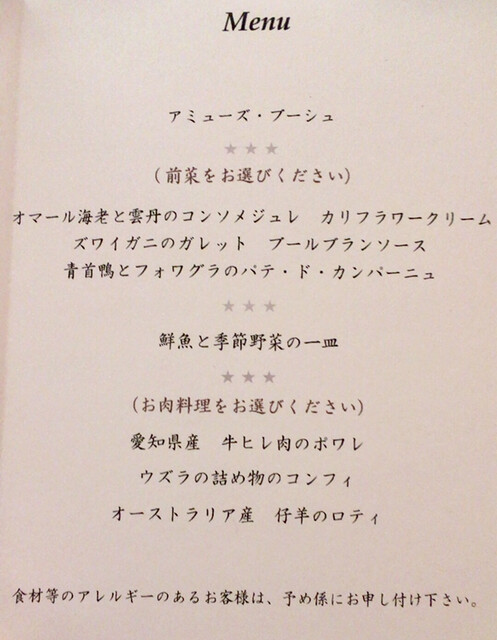 Menu
アミューズ・ブーシュ
★★★
(前菜をお選びください)
オマール海老と雲丹のコンソメジュレ　カリフラワークリーム
ズワイガニのガレット　ブールブランソース
青首鴨とフォワグラのパテ・ド・カンパーニュ
★★★
鮮魚と季節野菜の一皿
★★★
(お肉料理をお選びください)
愛知県産　牛ヒレ肉のポワレ
ウズラの詰め物のコンフィ
オーストラリア産　仔羊のロティ
食材等のアレルギーのあるお客様は、予め係にお申し付け下さい。